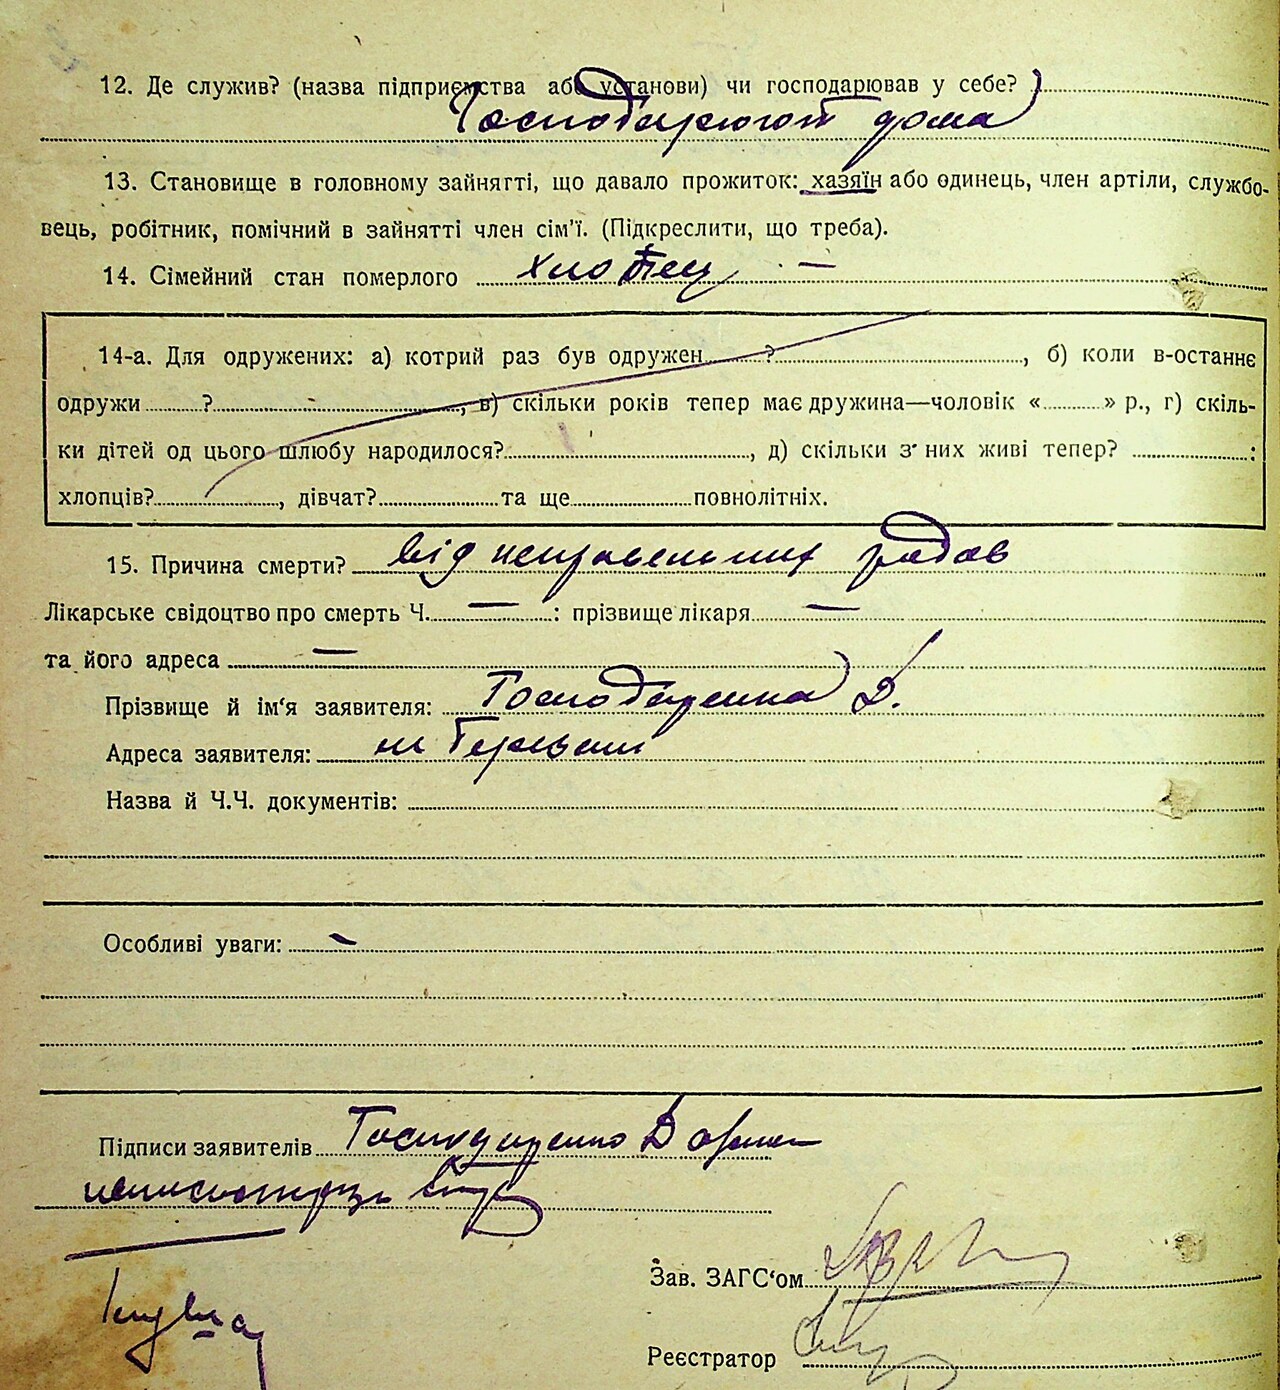 12. Де служив? (назва підприємства або установи) чи господарював у себе?
Господарюют дома
13. Становище в головному зайнятті, що давало прожиток: хазяїн або одинець, член артілі, службо-
вець, робітник, помічний в зайнятті член сім'ї. (Підкреслити, що треба).
14. Сімейний стан померлого Хлопец —
14-а. Для одружених: а) котрий раз був одружен ?, б) коли в-останнє
одружи ?, в) скільки років тепер має дружина—чоловік « » р., г) скіль-
ки дітей од цього шлюбу народилося?, д) скільки з' них живі тепер? :
хлопців?, дівчат? та ще повнолітніх.
15. Причина смерти? від неправельних радов
Лікарське свідоцтво про смерть Ч. — : прізвище лікаря —
та його адреса —
Прізвище й ім'я заявителя: Господаренка Д.
Адреса заявителя:
Назва й Ч.Ч. документів:
Особливі уваги: —
Підписи заявителів Господаренко
Зав. ЗАГС'ом
Реєстратор